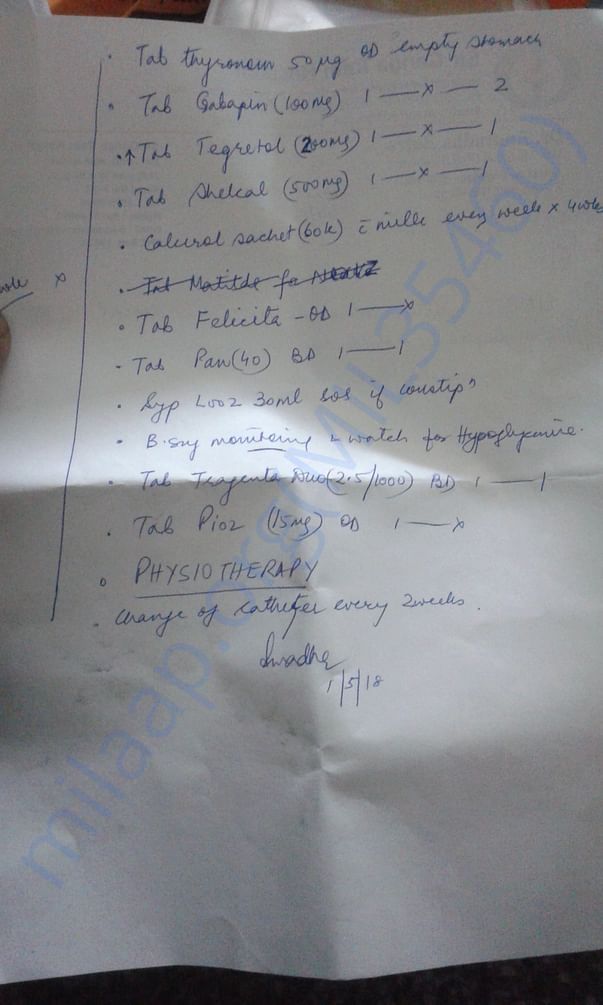 · Tab thyronorm 50 µg OD empty stomach
· Tab Gabapin (100mg) 1 — x — 2
· ↑ Tab Tegretol (200mg) 1 — x — 1
· Tab Shelcal (500mg) 1 — x — 1
· Calcirol sachet (60k) c̄ milk every week x 4 wks
· Tab
x
· Tab Felicita - OD 1 — x
· Tab Pan (40) BD 1 — 1
· Syp Looz 30ml sos if constipⁿ
· B. sug monitoring & watch for Hypoglycemia.
· Tab Trajenta Duo (2.5/1000) BD 1 — 1
· Tab Pioz (15mg) OD 1 — x
· PHYSIOTHERAPY
· Change of catheter every 2 weeks.
1/5/18
milaap.org(MIL35460)